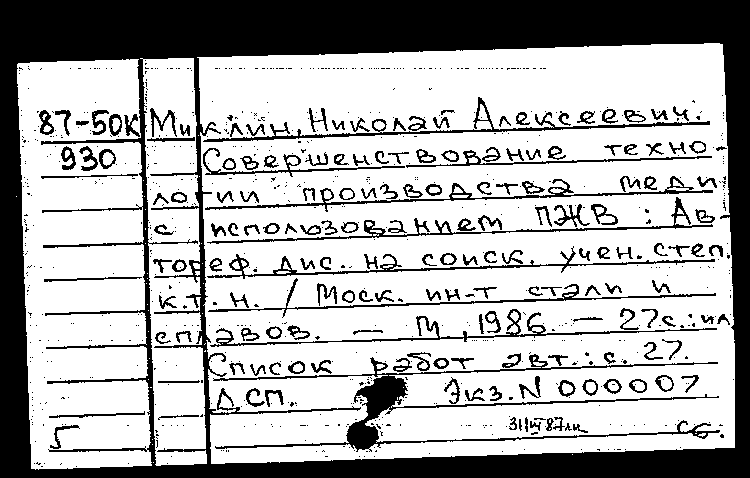 87-50К Миклин, Николай Алексеевич.
930 Совершенствование техно-
логии производства меди
с использованием ПЖВ : Ав-
тореф. дис. на соиск. учен. степ.
к.т.н. / Моск. ин-т стали и
сплавов. — М, 1986. — 27с.: ил
Список работ авт.: с. 27.
ДСП. Экз. N 000007.
5 сб.